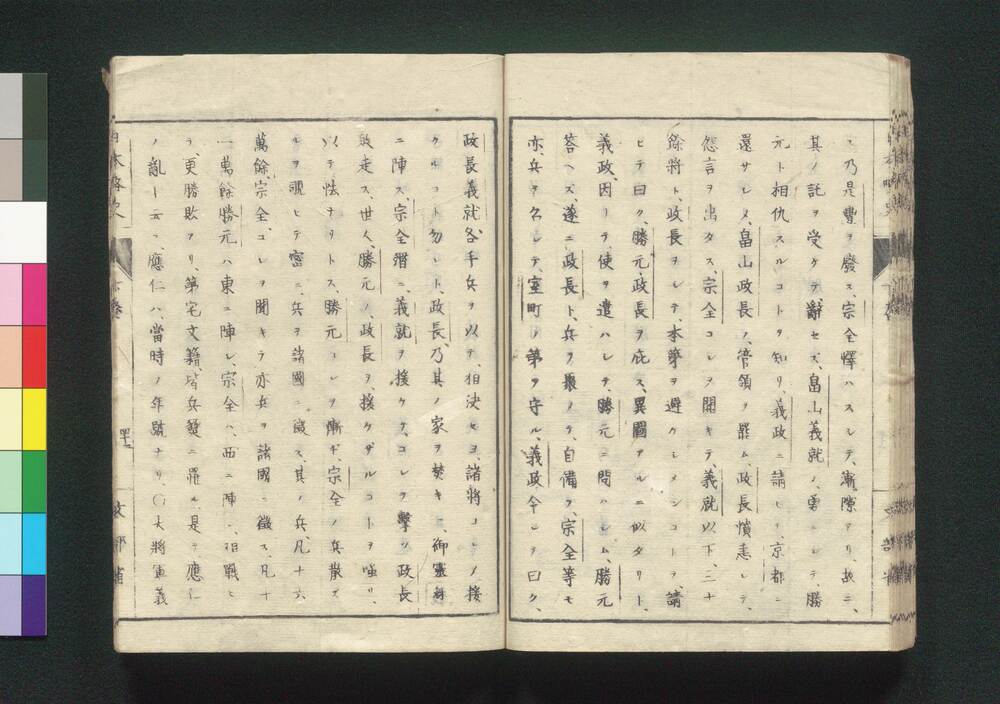 乃是豊ヲ廢ス宗全懌ハスシテ、漸隙アリ、故ニ、
其ノ託ヲ受ケテ、辭セズ、畠山義就ノ、勇ニシテ、勝
元ト相仇スルコトヲ知リ、義政ニ請ヒテ、京都ニ
還サシメ、畠山政長ノ、管領ヲ罷ム、政長憤恚シテ、
怨言ヲ出タス、宗全コレヲ聞キテ、義就以下、三十
餘將ト、政長ヲシテ、本第ヲ避ケシメンコトヲ、請
ヒテ曰ク、勝元、政長ヲ庇ス、異圖アルニ似タリト、
義政、因リテ、使ヲ遣ハシテ、勝元ニ問ハシム、勝元
答ヘズ、遂ニ政長ト、兵ヲ聚メテ、自備フ、宗全等モ
亦、兵ヲ名シテ、室町ノ第ヲ守ル、義政令シテ曰ク、
政長義就、各手兵ヲ以テ、相決セヨ、諸將コレヲ援
クルコト勿レト、政長、乃其ノ家ヲ焚キ、御靈
ニ陣ス、宗全潛ニ、義就ヲ援ケテ、コレヲ擊ツ、政長
敗走ス、世人、勝元ノ、政長ヲ、援ケザルコトヲ嗤リ、
以テ怯ナリトス、勝元コレヲ慚ギ、宗全ノ兵散ズ
ルヲ覗ヒテ、密ニ兵ヲ諸國ニ徴ス、其ノ兵、凡十六
萬餘、宗全、コレヲ聞キテ、亦兵ヲ諸國ニ徴ス、凡十
一萬餘、勝元ハ東ニ陣シ、宗全ハ、西ニ陣シ、相戰ヒ
テ、更勝敗アリ、第宅文籍、皆兵燹ニ罹ル、是ヲ、應仁
ノ亂ト云フ、應仁ハ、當時ノ年號ナリ、〇大將軍義
日本略史
文部省